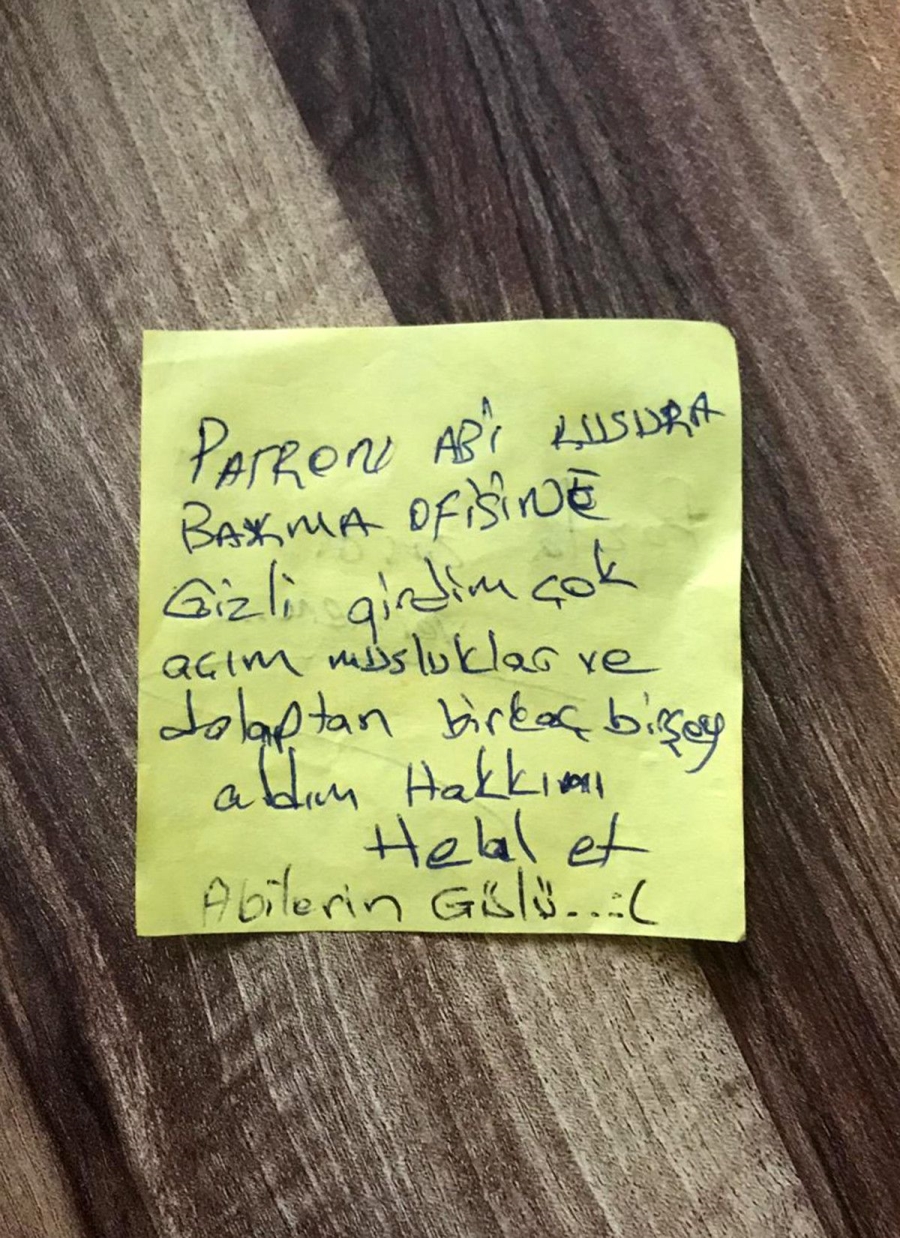 PATRON ABİ KUSURA
BAKMA OFİSİNE
Gizli girdim çok
açım musluklar ve
dolaptan birkaç birşey
aldım Hakkımı
Helal et
Abilerin Gülü...:(